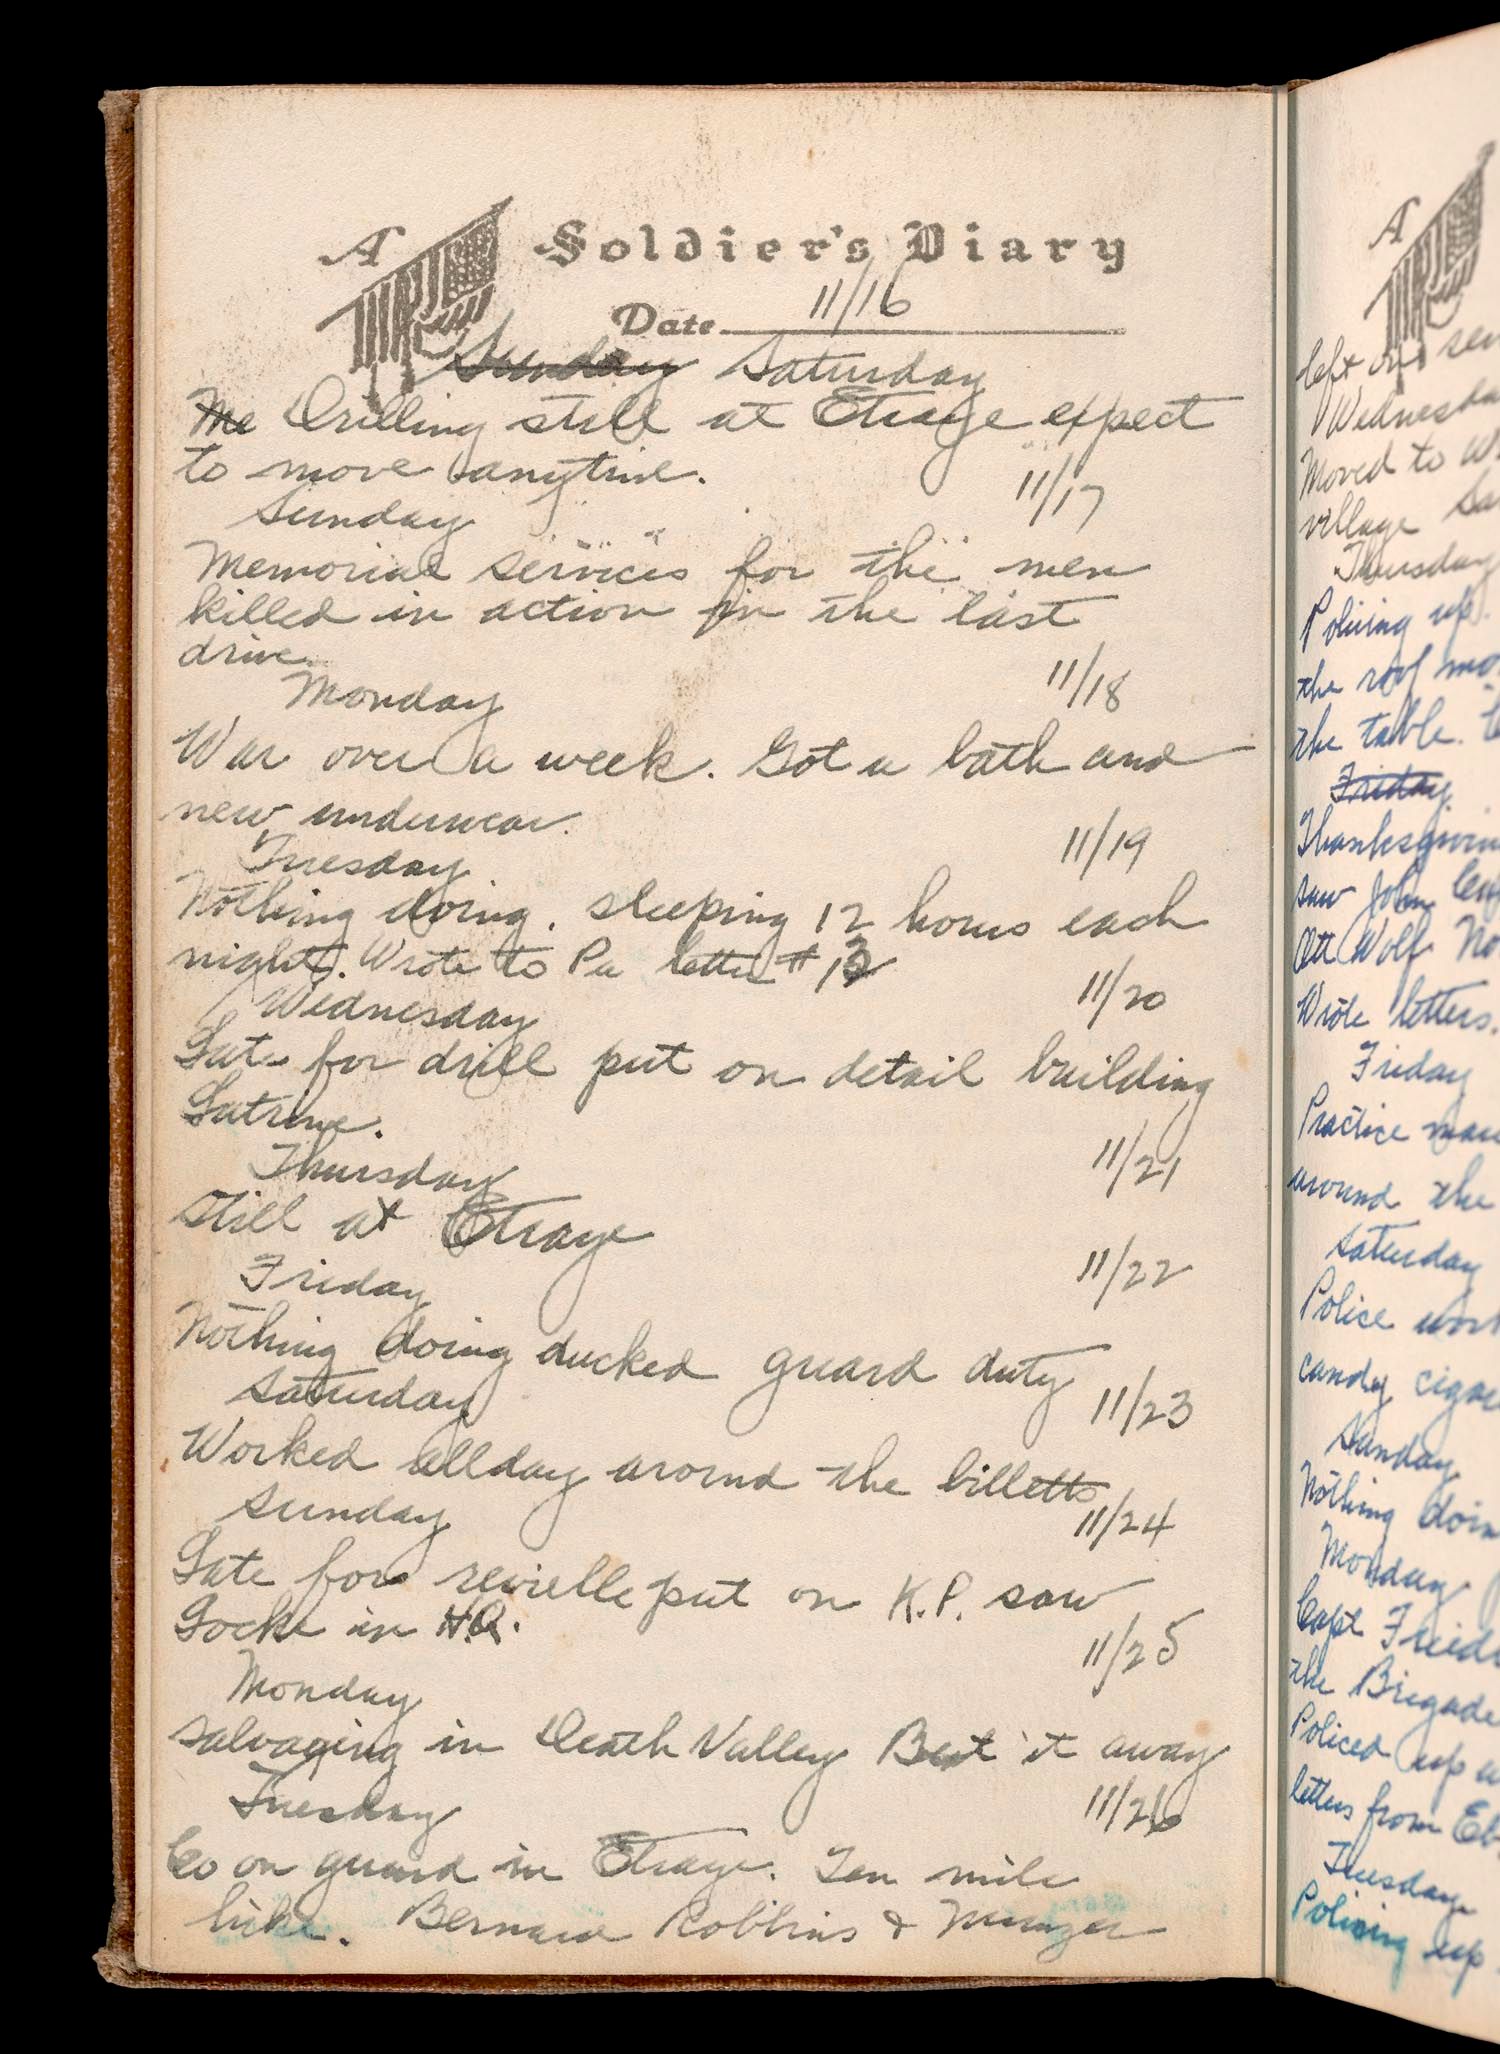 A Soldier's Diary
Date 11/16
Sunday Saturday
Me Drilling still at Etraye expect
to move anytime.
11/17
Sunday
Memorial services for the men
killed in action in the last
drive.
11/18
Monday
War over a week. Got a bath and
new underwear.
11/19
Tuesday
Nothing doing. sleeping 12 hours each
night. Wrote to Pa letter # 13
11/20
Wednesday
Late for drill put on detail building
Latrine.
11/21
Thursday
Still at Etraye
11/22
Friday
Nothing doing ducked guard duty
11/23
Saturday
Worked allday around the billetts
11/24
Sunday
Late for revielle put on K.P. saw
Locke in H.Q.
11/25
Monday
Salvaging in Death Valley Beat it away
11/26
Tuesday
Co on guard in Etraye. Ten mile
hike. Bernard Robbins & Munzer
A
left on
Wednesda
Moved to W
village
Thursday
Policing up.
the roof mo
the table.
Friday
Thanksgivin
saw John
Ott Wolf No
Wrote letters.
Friday
Practice
around the
Saturday
Police work
candy cigar
Sunday
Nothing doin
Monday
Capt Fried
the Brigade
Policed up
letters from
Tuesday
Policing up